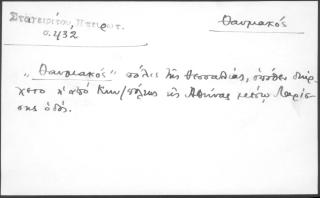 Σταγειρίτου, Ηπειρωτ.
σ. 432
Θαυμακός
„Θαυμακός" πόλις τῆς Θεσσαλίας, ὁπόθεν διήρ-
χετο ἡ ἀπό Κων/πόλεως εἰς Ἀθήνας μέσῳ Λαρίσ-
σης ὁδός.